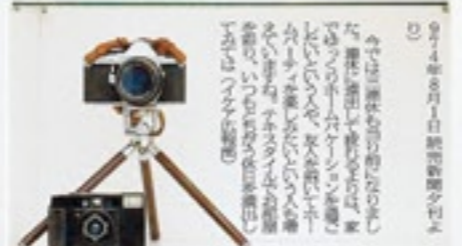 974年8月1日 読売新聞夕刊よ
り)
今では三連休も当り前になりまし
た。連休に遠出して疲れるよりは、家
でゆっくりホームバケーションを過ご
したいという人や、友人を招いてホー
ムパーティを楽しみたいという人も増
えていますね。テキスタイルでお部屋
を飾り、いつもとちがう休日を演出し
てみては